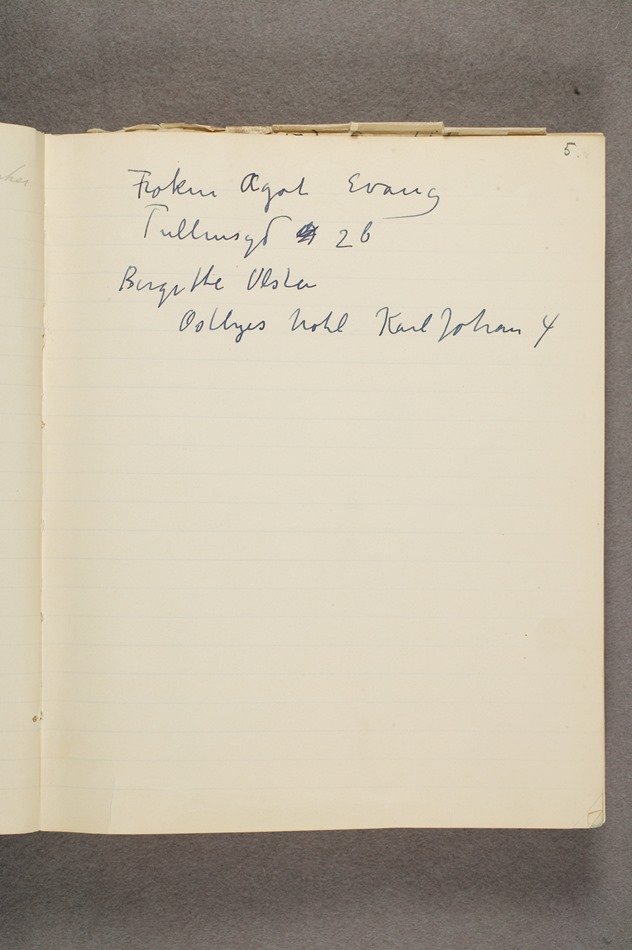 5.
Frøken Agot Evang
Tullinsgd 26
Birgitte Olsen
Østbyes hotel Karl Johan 4